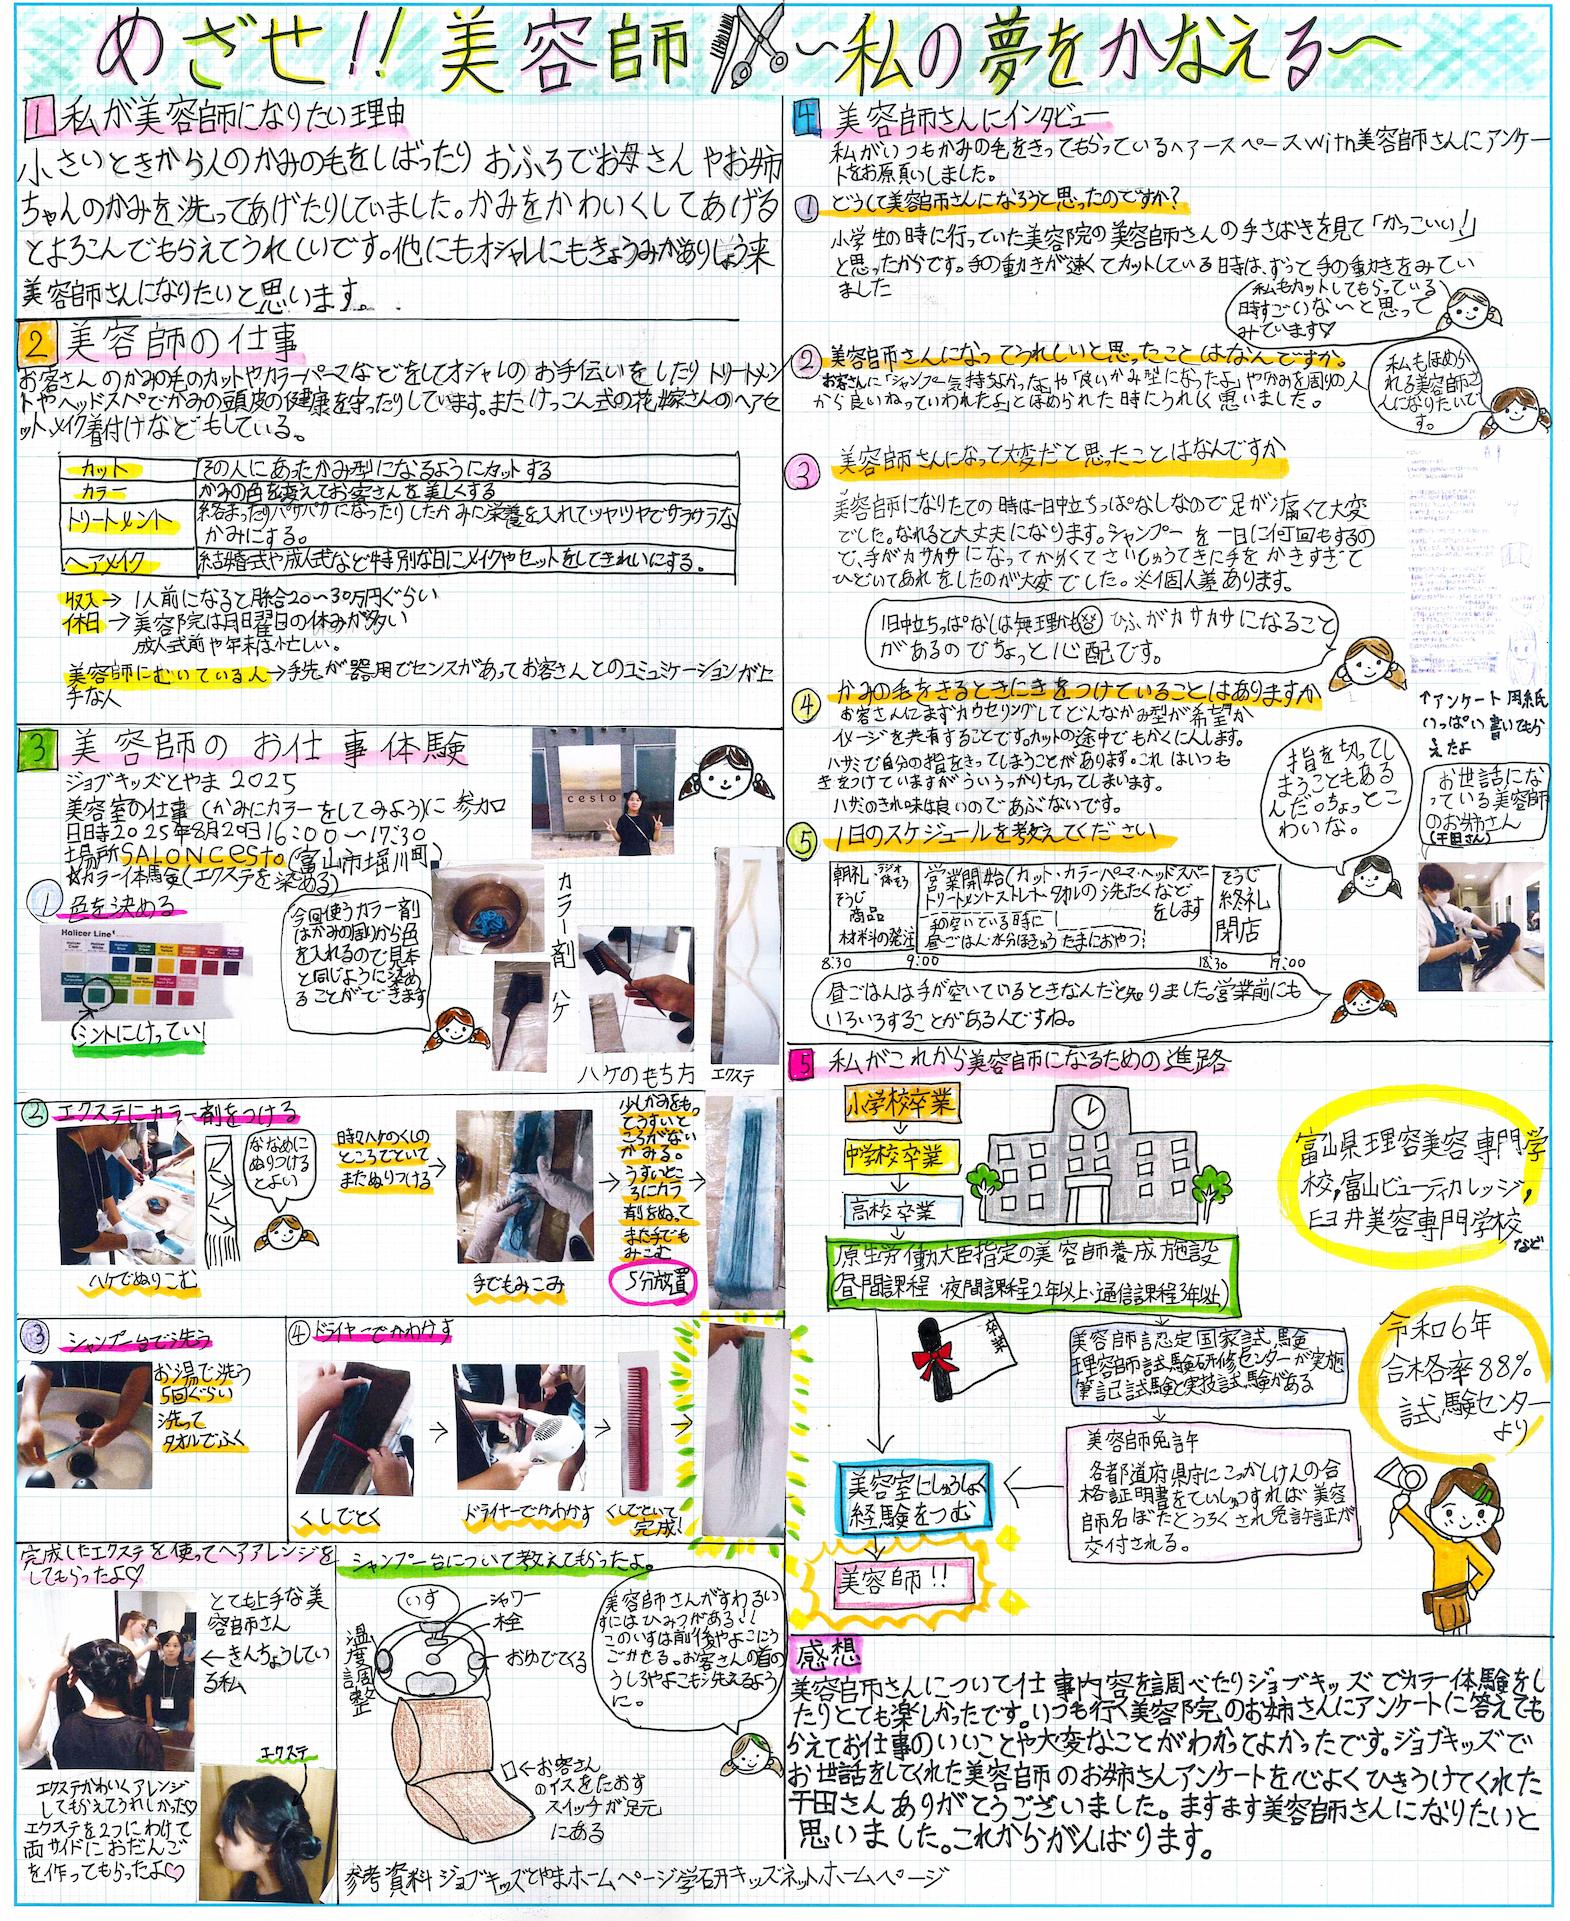 めざせ!!美容師 ~私の夢をかなえる~
1 私が美容師になりたい理由
小さいときから人のかみの毛をしばったり おふろでお母さんやお姉
ちゃんのかみを洗ってあげたりしていました。かみをかわいくしてあげる
とよろこんでもらえてうれしいです。他にもオシャレにもきょうみがありしょう来
美容師さんになりたいと思います。
2 美容師の仕事
お客さんのかみの毛のカットやカラーパーマなどをしてオシャレのお手伝いをしたりトリートメン
トやヘッドスパでかみの頭皮の健康を守ったりしています。またけっこん式の花嫁さんのヘアセ
ット、メイク着付けなどもしている。
カット その人にあったかみ型になるようにカットする
カラー かみの色を変えてお客さんを美しくする
トリートメント 絡まったりパサパサになったりしたかみに栄養を入れてツヤツヤでサラサラな
かみにする。
ヘアメイク 結婚式や成人式など特別な日にメイクやセットをしてきれいにする。
収入→ 1人前になると月給20〜30万円ぐらい
休日→美容院は月曜日の休みが多い
成人式前や年末は忙しい。
美容師にむいている人→手先が器用でセンスがあってお客さんとのコミュミケーションが上
手な人
3 美容師のお仕事体験
ジョブキッズとやま2025
美容室の仕事(かみにカラーをしてみよう)に参加
日時2025年8月20日16:00〜17:30
場所SALON cesto(富山市堀川町)
☆カラー体験(エクステを染める)
cesto
① 色を決める
Holicer Line
ミントにけってい!
今回使うカラー剤
はかみの周りから色
を入れるので見本
と同じように染め
ることができます
カラー剤
ハケ
ハケのもち方
エクステ
② エクステにカラー剤をつける
ハケでぬりこむ
ななめに
ぬりつける
とよい
時々ハケのくしの
ところでといて
またぬりつける
→
手でもみこみ
少しかみをもっ
てうすいと
ころがない
かみる。
うすいとこ
ろにカラー
剤をぬって
また手でも
みこむ
5分放置
③ シャンプー台で洗う
お湯で洗う
5回ぐらい
洗って
タオルでふく
④ ドライヤーでかわかす
くしでとく
→
ドライヤーでかわかす
→
くしでといて
完成!
→
完成したエクステを使ってヘアアレンジを
してもらったよ♡
とても上手な美
容師さん
←きんちょうしてい
る私
エクステ
エクステかわいくアレンジ
してもらえてうれしかった♡
エクステを2つにわけて
両サイドにおだんご
を作ってもらったよ♡
シャンプー台について教えてもらったよ。
いす
シャワー
栓
おゆでてくる
温度調整
←お客さん
のイスをたおす
スイッチが足元
にある
美容師さんがすわるい
すにはひみつがある!!
このいすは前後やよこにう
ごかせる。お客さんの首の
うしろやよこも洗えるよう
に。
参考資料 ジョブキッズとやまホームページ 学研キッズネットホームページ
4 美容師さんにインタビュー
私がいつもかみの毛をきってもらっているヘアースペースwith美容師さんにアンケー
トをお願いしました。
① どうして美容師さんになろうと思ったのですか?
小学生の時に行っていた美容院の美容師さんの手さばきを見て「かっこいい!」
と思ったからです。手の動きが速くてカットしている時は、ずっと手の動きをみてい
ました
私もカットしてもらっている
時すごいな〜と思って
みています♡
② 美容師さんになってうれしいと思ったことはなんですか。
お客さんに「シャンプー気持ちよかったよ」や「良いかみ型になったよ」や「かみを周りの人
から良いねっていわれたよ」とほめられた時にうれしく思いました。
私もほめら
れる美容師さ
んになりたいで
す。
③ 美容師さんになって大変だと思ったことはなんですか
美容師になりたての時は一日中立ちっぱなしなので足が痛くて大変
でした。なれると大丈夫になります。シャンプーを一日に何回もするの
で、手がカサカサになってかゆくてさいしゅうてきに手をかきすぎて
ひどいてあれをしたのが大変でした。※個人差あります。
1日中立ちっぱなしは無理かも ひふがカサカサになること
があるのでちょっと心配です。
④ かみの毛をきるときにきをつけていることはありますか
お客さんにまずカウセリングしてどんなかみ型が希望か
イメージを共有することです。カットの途中でもかくにんします。
ハサミで自分の指をきってしまうことがあります。これはいつも
きをつけていますがういうっかり切ってしまいます。
ハサミのきれ味は良いのであぶないです。
指を切ってし
まうこともある
んだ。ちょっとこ
わいな。
↑アンケート用紙
いっぱい書いてもら
えたよ
お世話にな
っている美容師
のお姉さん
(干田さん)
⑤ 1日のスケジュールを教えてください
朝礼・ラジオ体そう
そうじ
商品
材料の発注
営業開始(カット・カラーパーマ・ヘッドスパ・
トリートメントストレート・タオルの洗たくなど
をします
手の空いている時に
昼ごはん・水分ほきゅう たまにおやつ!
そうじ
終礼
閉店
8:30 9:00 18:30 19:00
昼ごはんは手が空いているときなんだと知りました。営業前にも
いろいろすることがあるんですね。
5 私がこれから美容師になるための進路
小学校卒業
中学校卒業
高校卒業
厚生労働大臣指定の美容師養成施設
(昼間課程・夜間課程2年以上・通信課程3年以上)
富山県理容美容専門学
校,富山ビューティカレッジ,
臼井美容専門学校
など
卒業
美容師認定国家試験
理容師試験研修センターが実施
筆記試験と実技試験がある
令和6年
合格率88%
試験センター
より
美容師免許
各都道府県庁にこっかしけんの合
格証明書をていしゅつすれば美容
師名ぼにとうろくされ免許証が
交付される。
美容室にしゅうしょく
経験をつむ
美容師!!
感想
美容師さんについて仕事内容を調べたりジョブキッズでカラー体験をし
たりとても楽しかったです。いつも行く美容院のお姉さんにアンケートに答えても
らえてお仕事のいいことや大変なことがわかってよかったです。ジョブキッズで
お世話をしてくれた美容師のお姉さんアンケートを心よくひきうけてくれた
干田さんありがとうございました。ますます美容師さんになりたいと
思いました。これからがんばります。